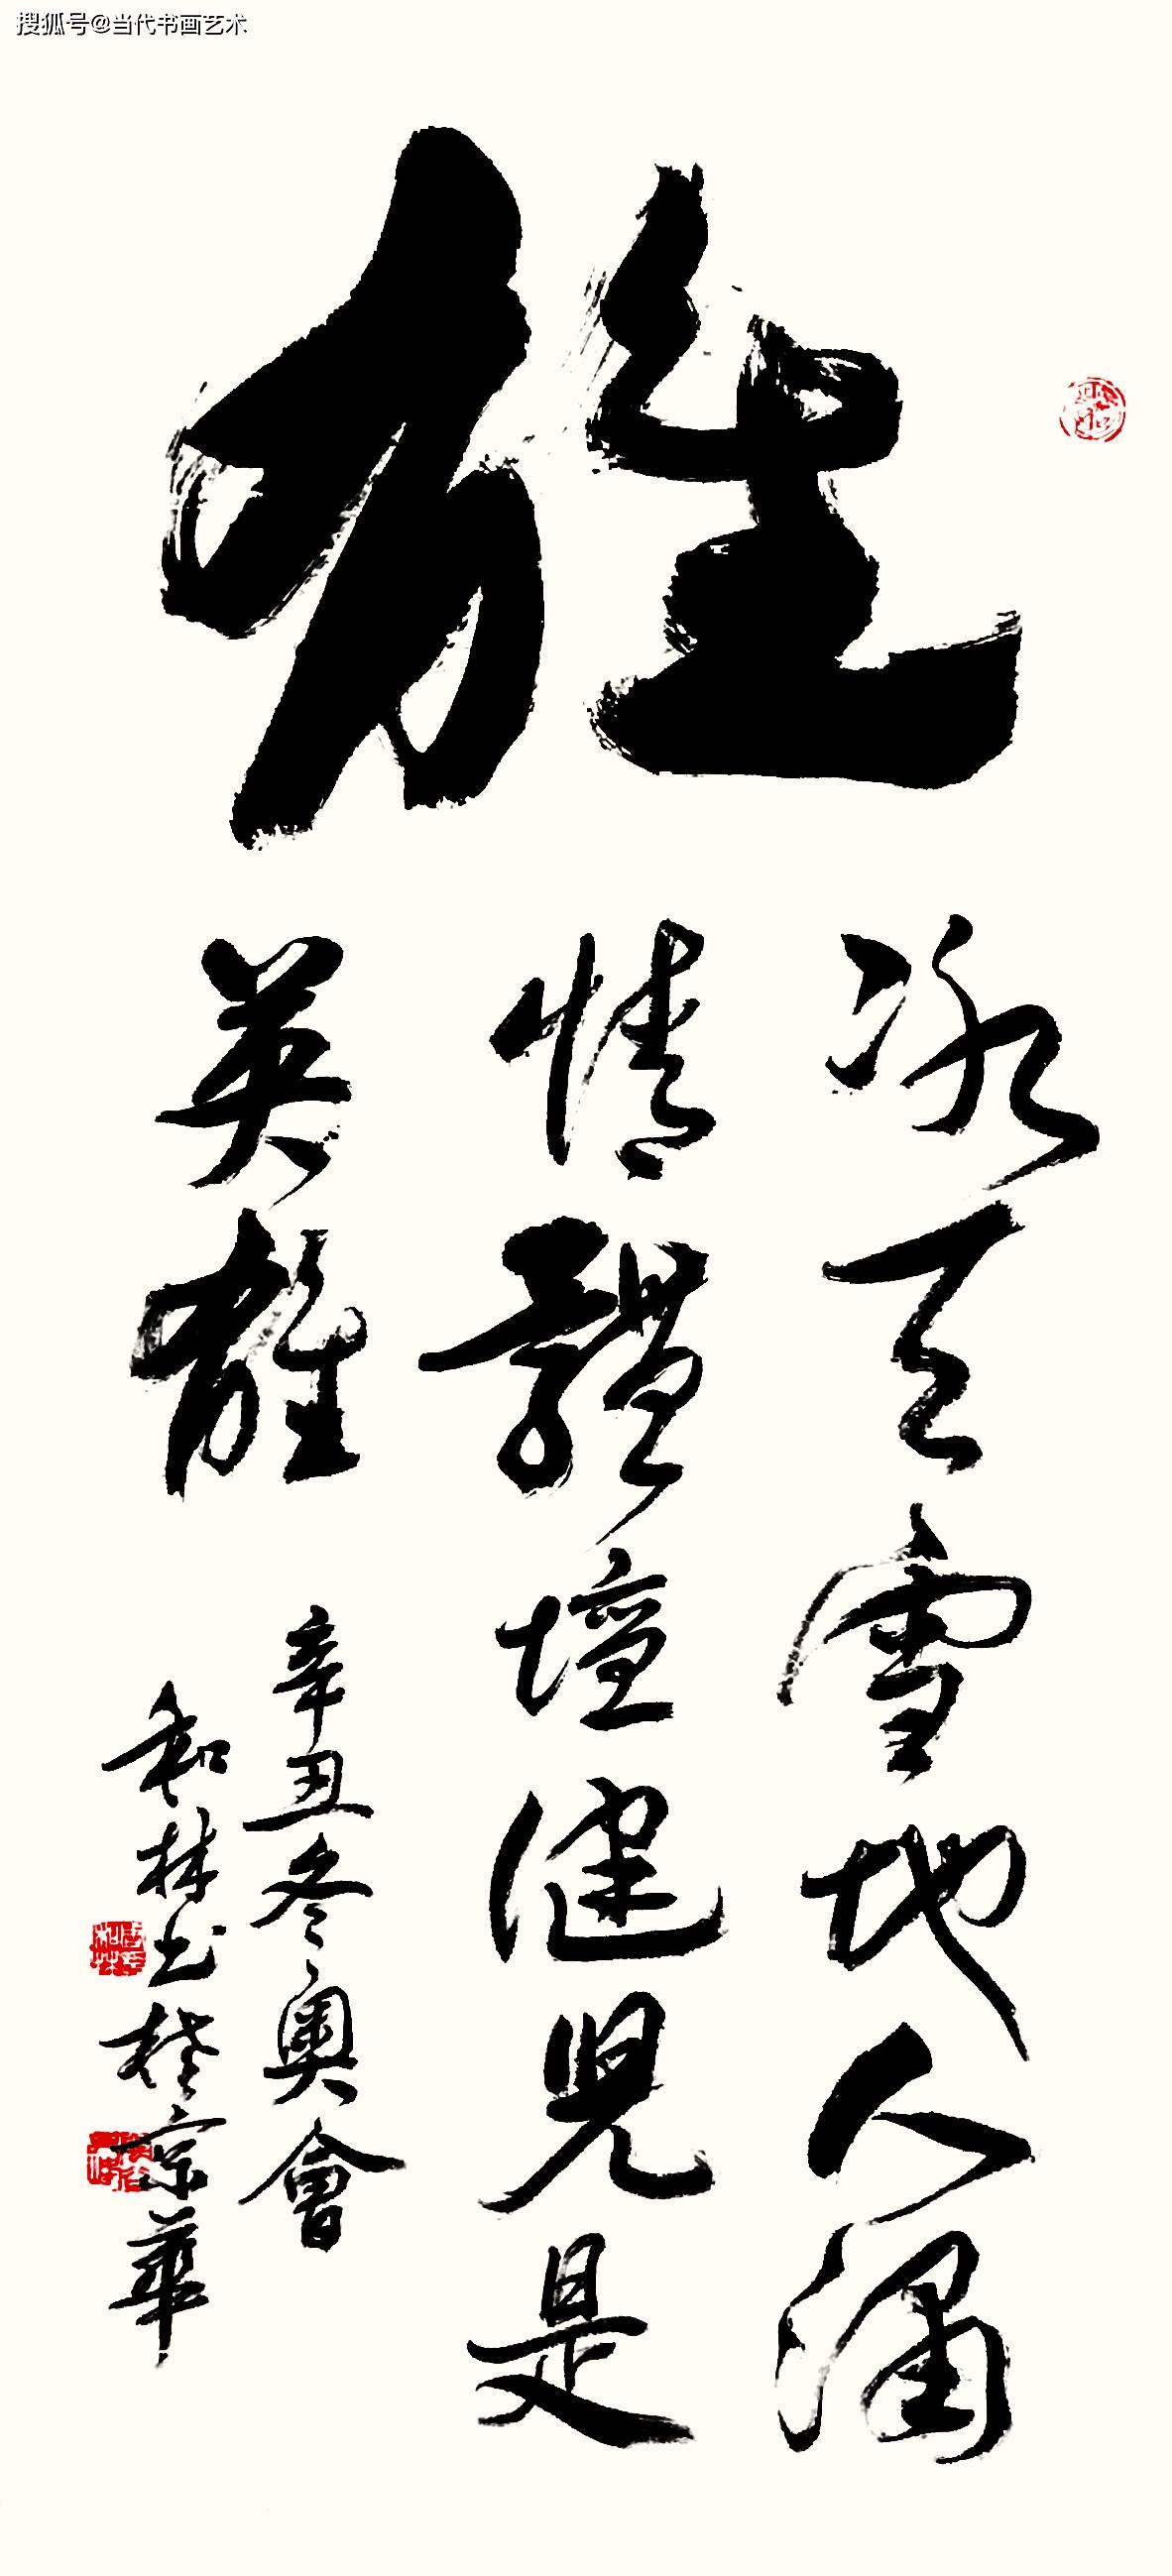 搜狐号@当代书画艺术
雄
冰天雪地人涌
情體壇健兒是
英雄
辛丑冬奧會
和林书於京華